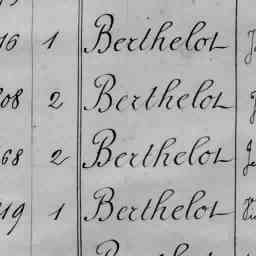 16 1 Berthelot
08 2 Berthelot
68 2 Berthelot
19 1 Berthelot